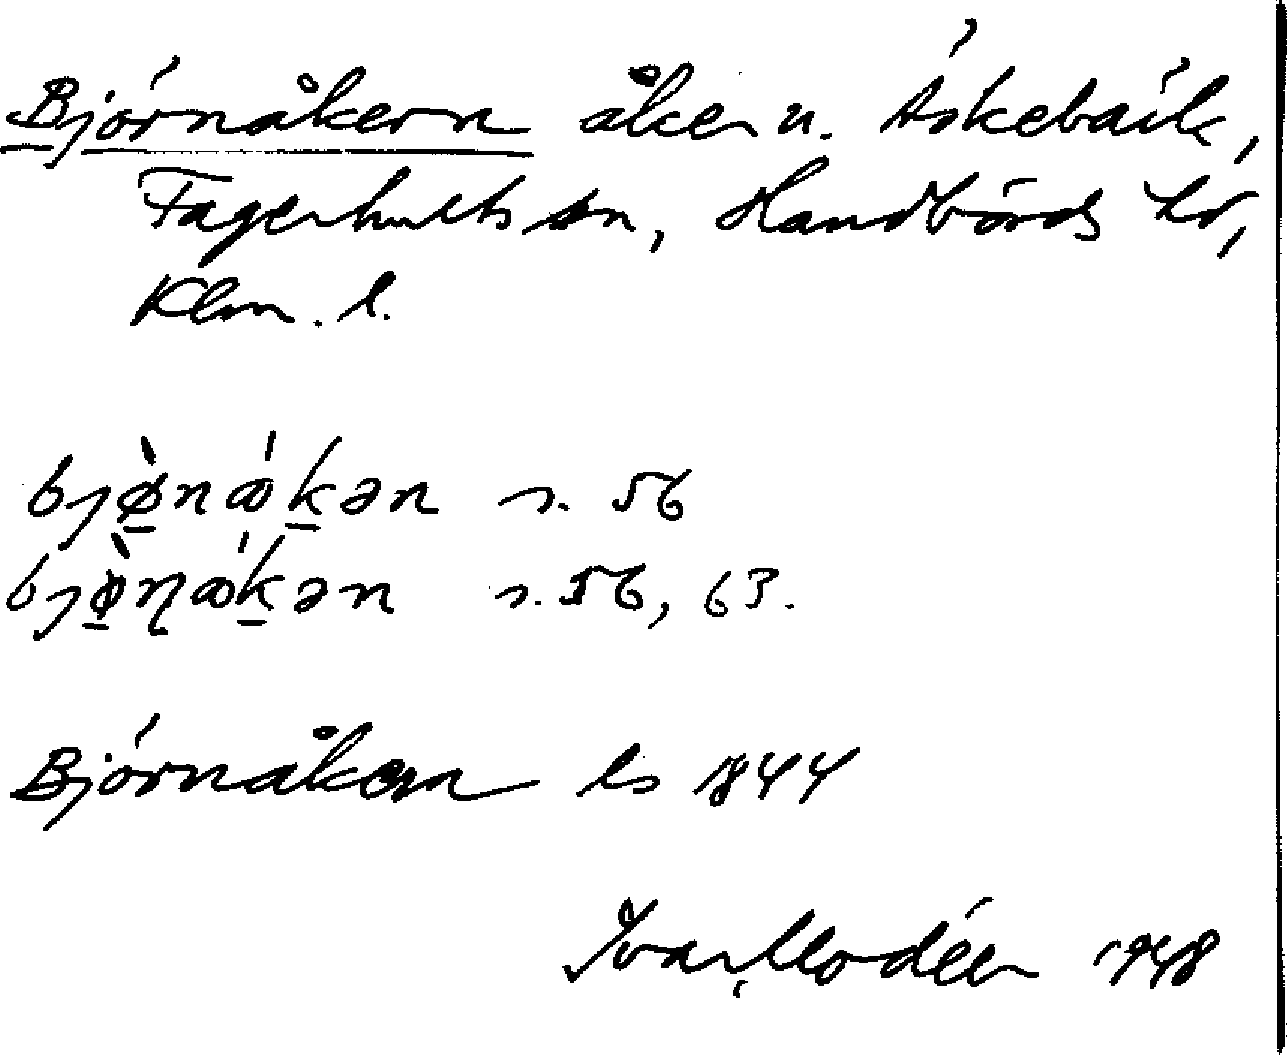 Björnåkern åker n. Äskebäck,
Fagerhults sn, Handbörds hd,
Klm. l.
bjø̱̀nǻḵən s. 56
bjø̱̀ɳåḵən s. 56, 63.
Björnåkern ls 1844
Ivar Modéer 1948